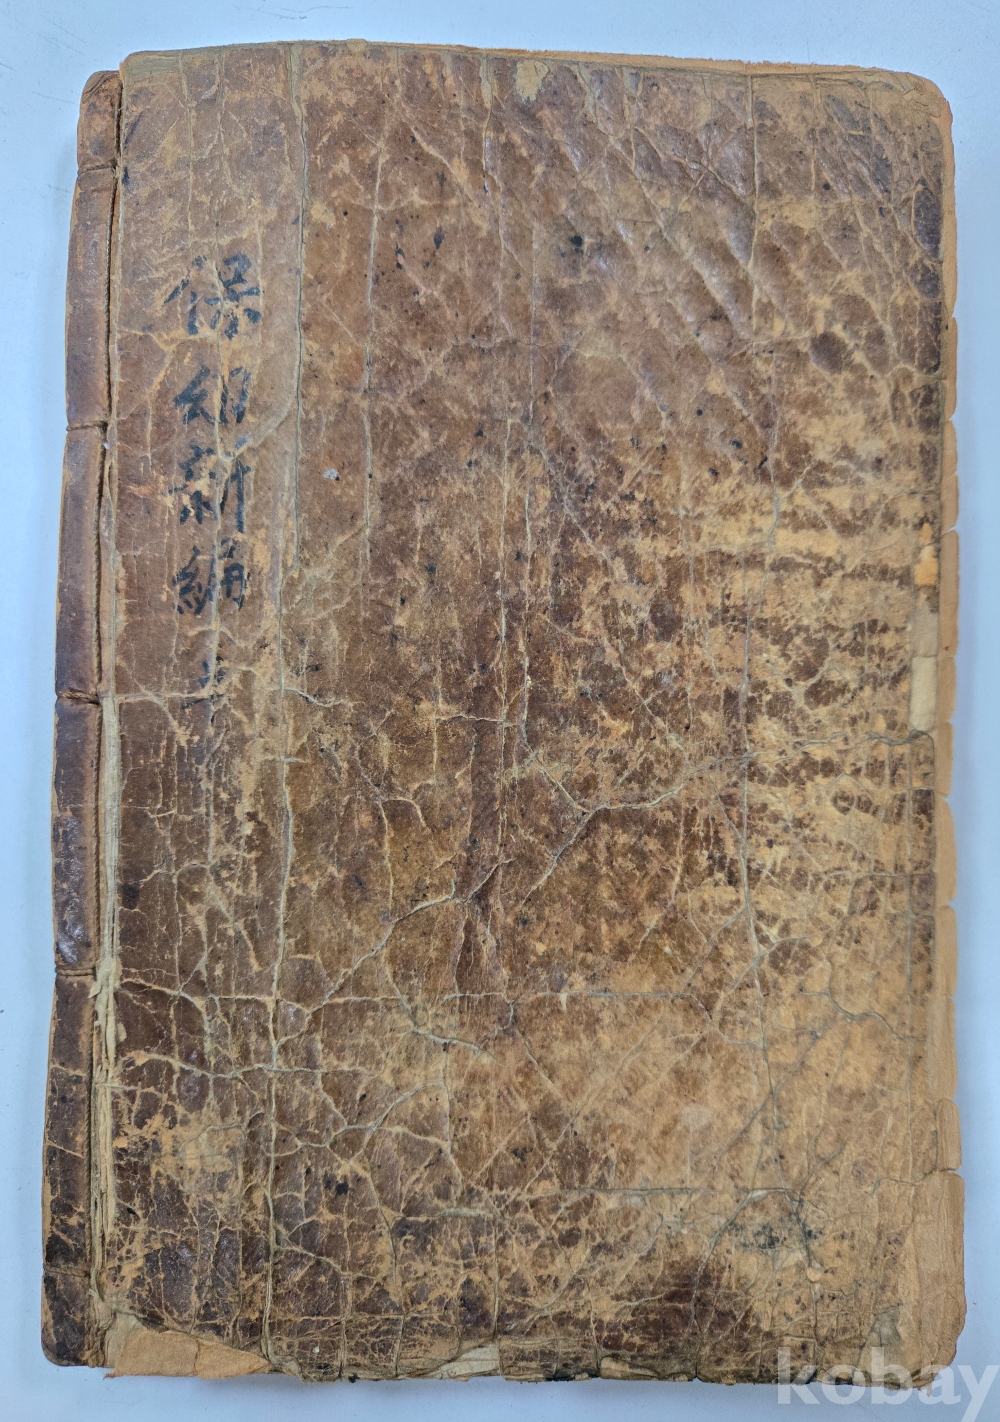 保幼新編
kobay